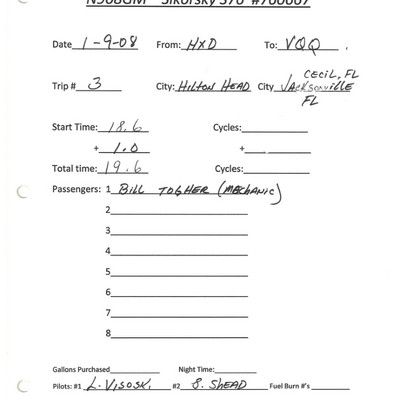 N908GM Sikorsky S76 #760667
Date 1-9-08 From: HXD To: VQQ .
Trip # 3 City: HILTON HEAD City CECIL, FL
JACKSONVILLE
FL
Start Time: 18.6 Cycles:
+ 1.0 +
Total time: 19.6 Cycles:
Passengers: 1 BILL TOGHER (MECHANIC)
2
3
4
5
6
7
8
Gallons Purchased Night Time:
Pilots: #1 L. VISOSKI #2 S. SHEAD Fuel Burn #'s